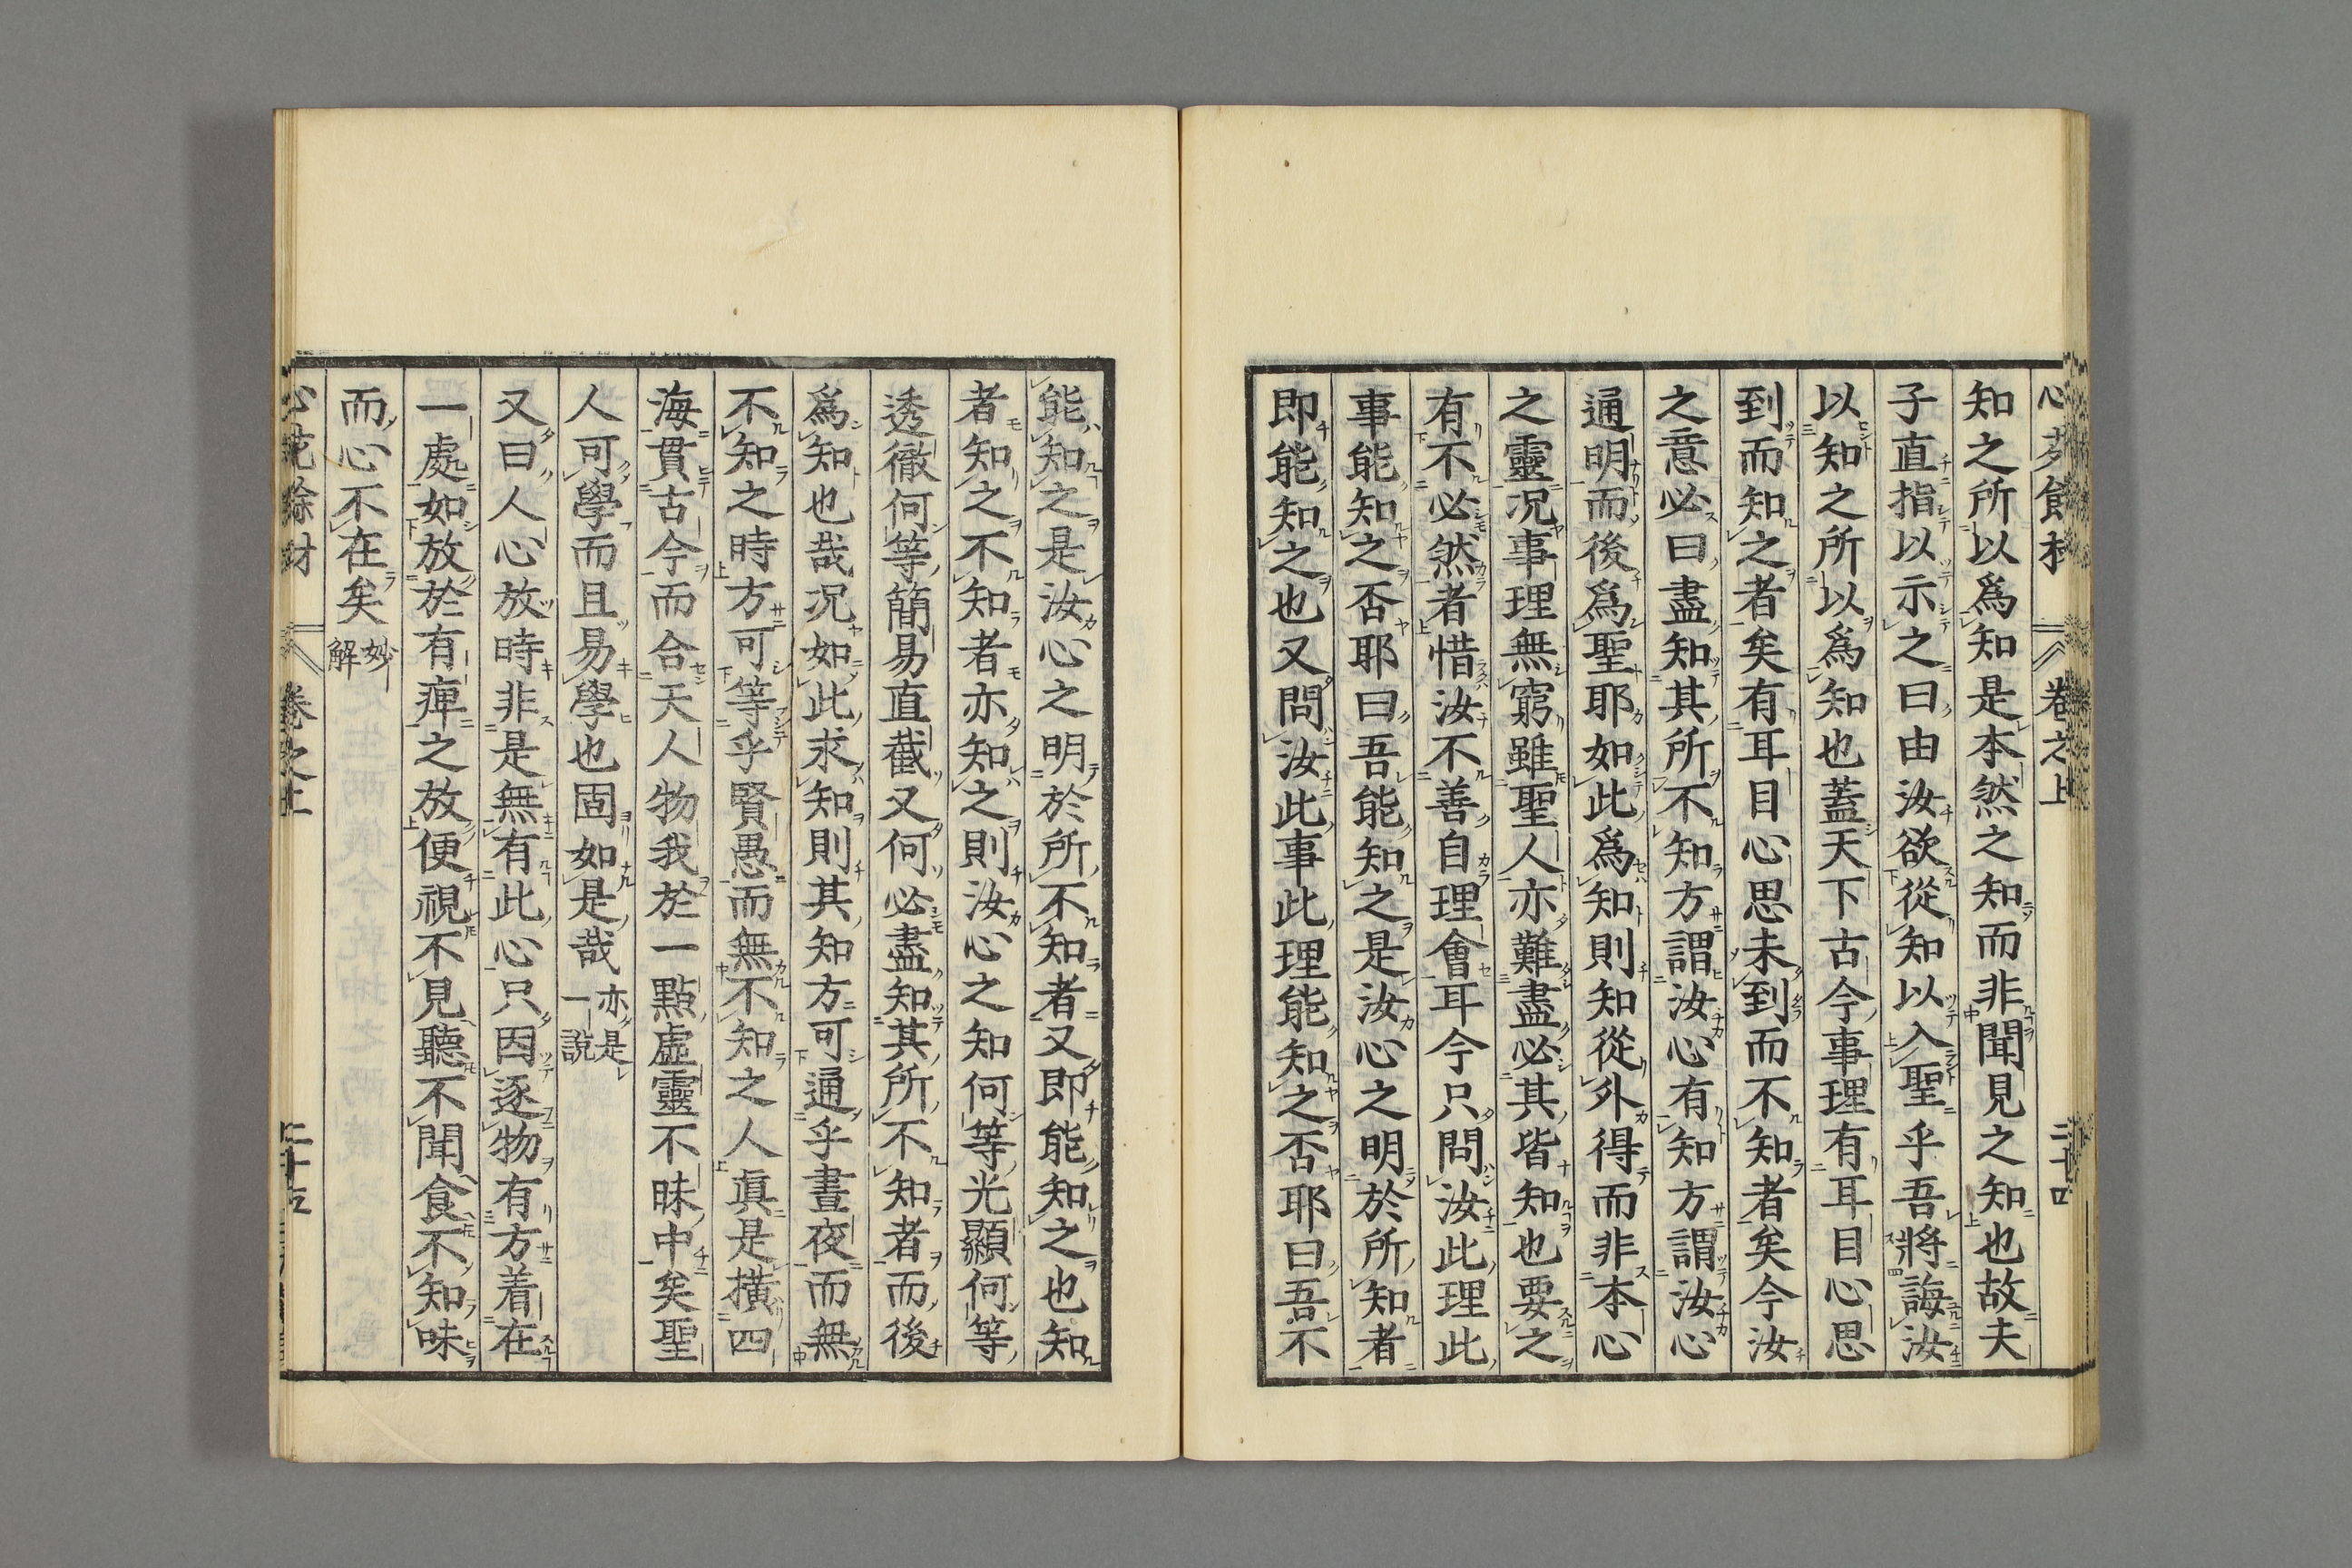 知之所以爲知是本然之知而非聞見之知也故夫
子直指以示之曰由汝欲從知以入聖乎吾將誨汝
以知之所以爲知也蓋天下古今事理有耳目心思
到而知之者矣有耳目心思未到而不知者矣今汝
之意必曰盡知其所不知方謂汝心有知方謂汝心
通明而後爲聖耶如此爲知則知從外得而非本心
之靈况事理無窮雖聖人亦難盡必其皆知也要之
有不必然者惜汝不善自理會耳今只問汝此理此
事能知之否耶曰吾能知之是汝心之明於所知者
即能知之也又問汝此事此理能知之否耶曰吾不
能知之是汝心之明於所不知者又即能知之也知
者知之不知者亦知之則汝心之知何等光顯何等
透徹何等簡易直截又何必盡知其所不知者而後
爲知也哉况如此求知則其知方可通乎晝夜而無
不知之時方可等乎賢愚而無不知之人眞是橫四
海貫古今而合天人物我於一點虛靈不昧中矣聖
人可學而且易學也固如是哉亦是一說
又曰人心放時非是無有此心只因逐物有方着在
一處如放於有庳之放便視不見聽不聞食不知味
而心不在矣妙解
卷之上
二十四